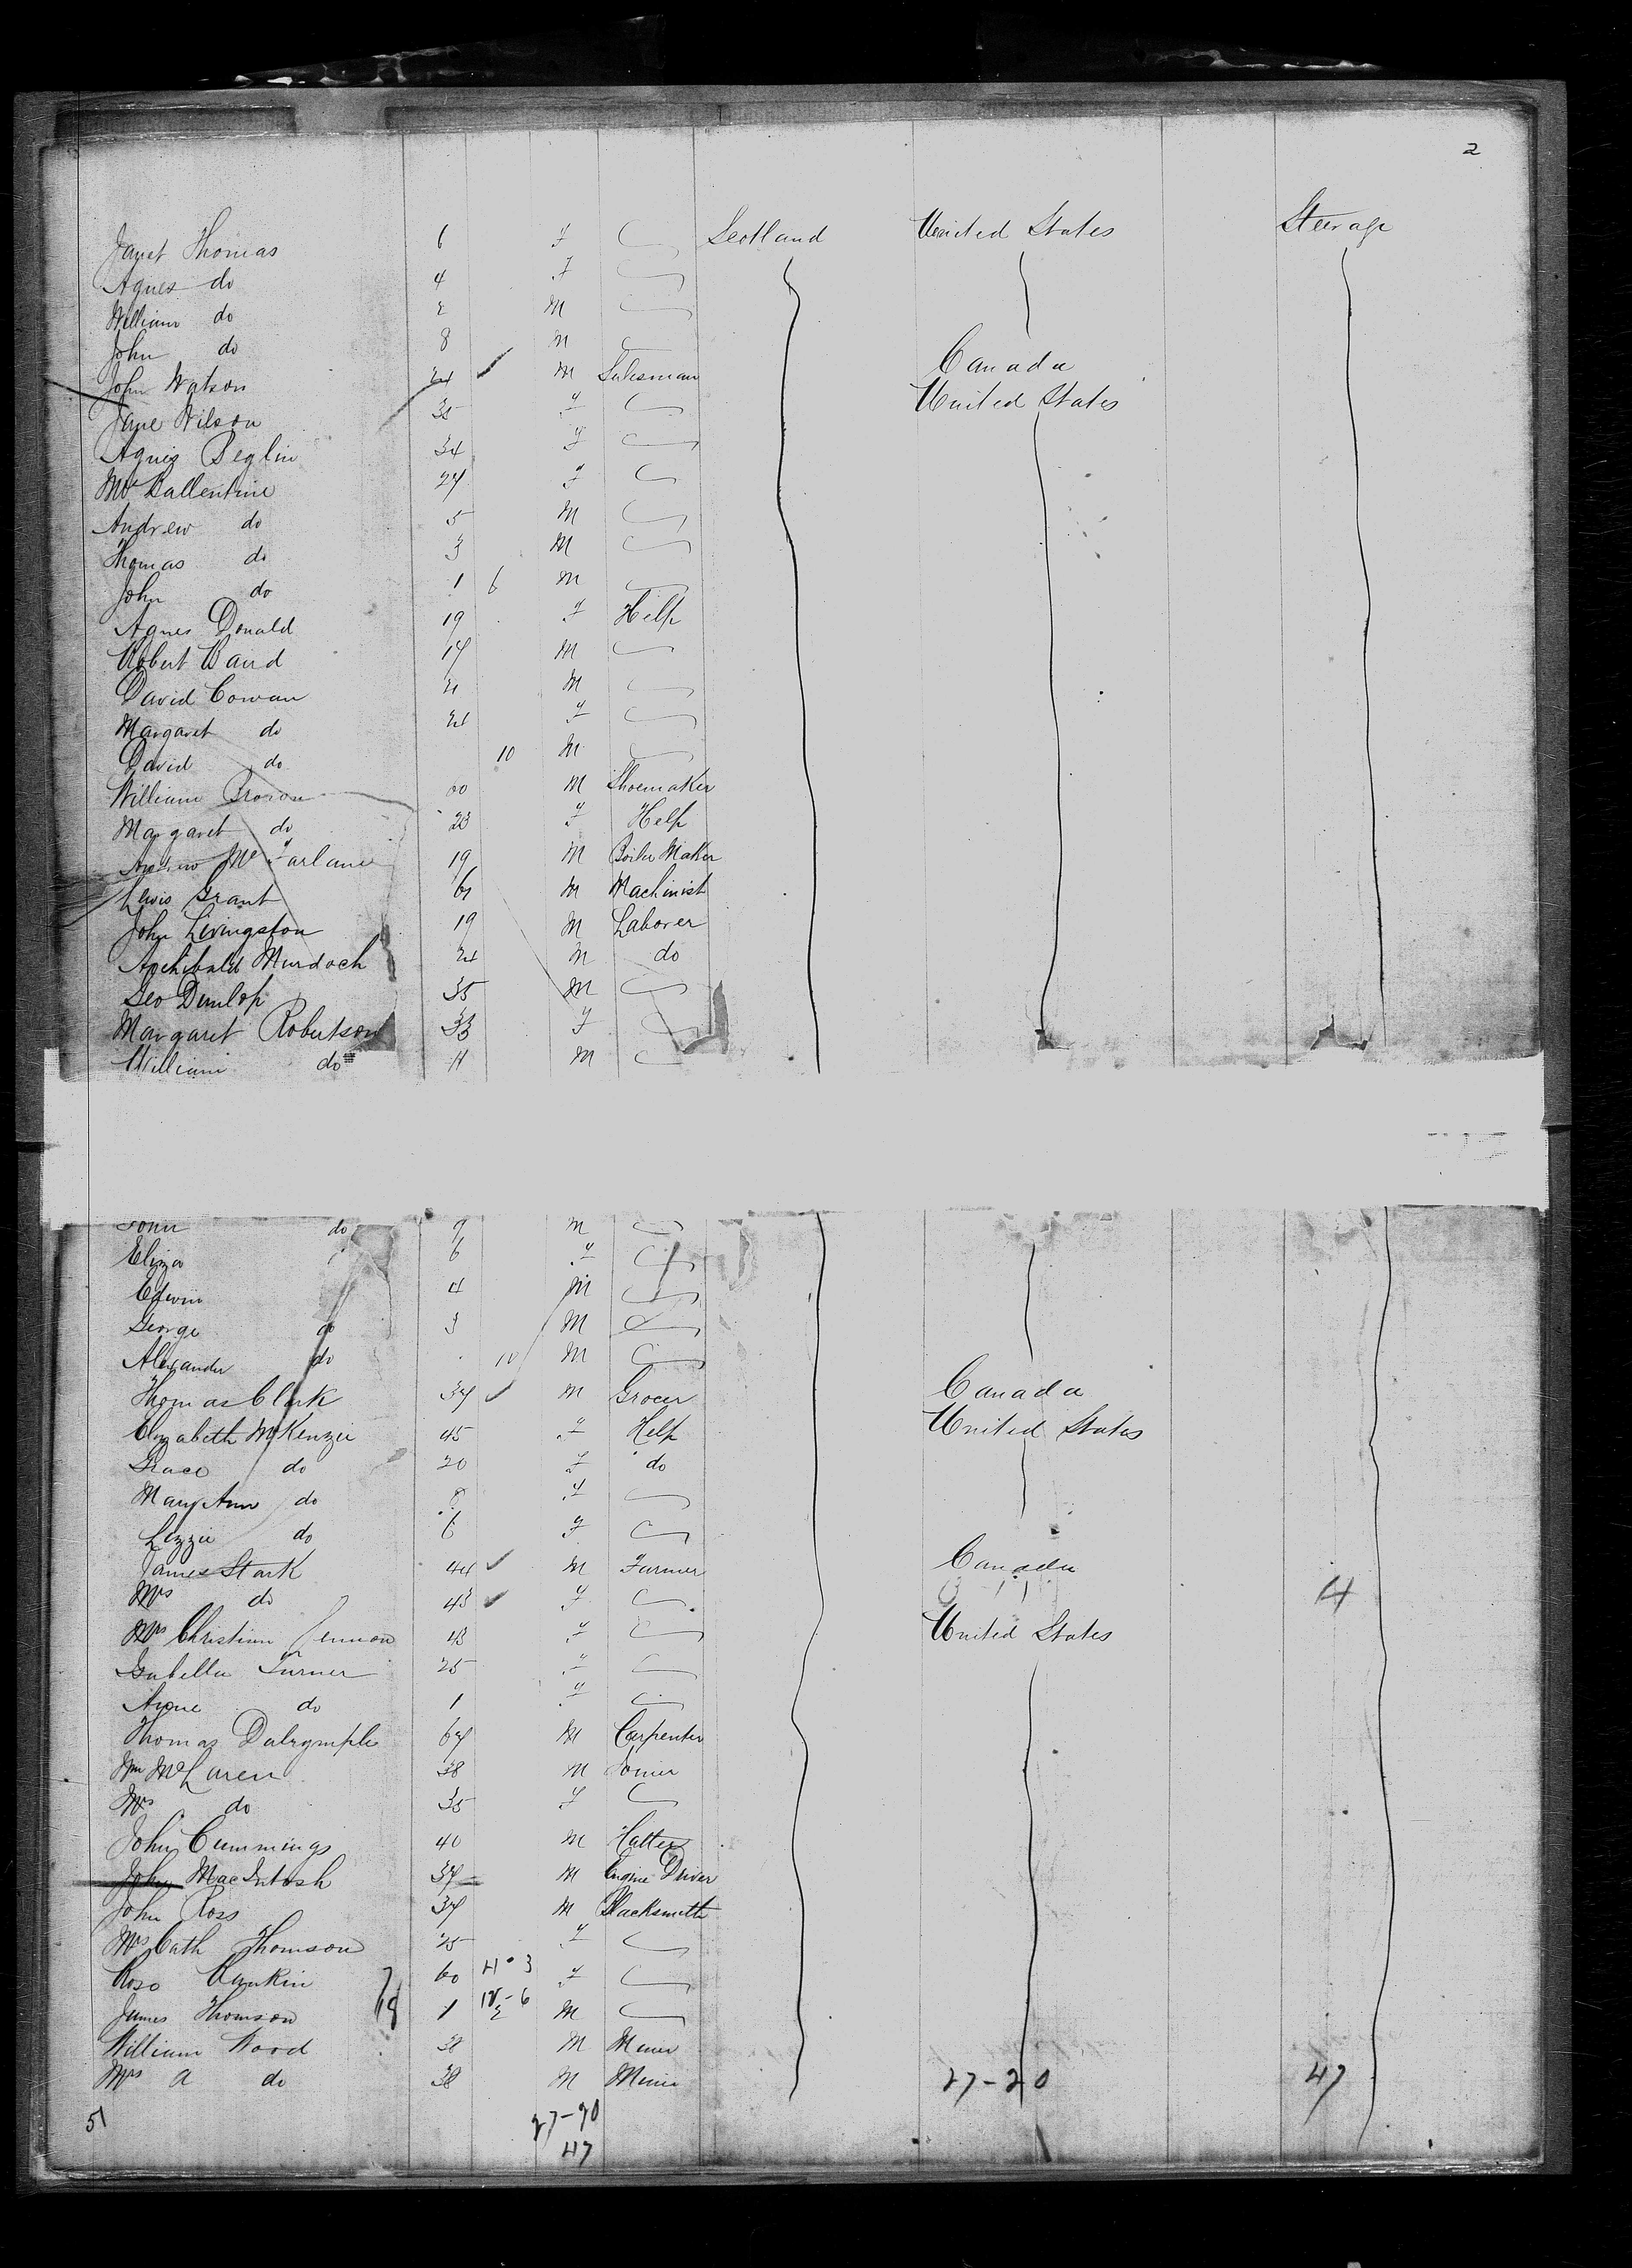 2
Janet Thomas 6 F Scotland United States Steerage
Agnes do 4 F
William do 2 M
John do 8 M
John Watson 24 ✓ M Salesman Canada
Jane Wilson 35 F United States
Agnes Beglin 34 F
Mrs Ballentine 27 F
Andrew do 5 M
Thomas do 3 M
John do 1 6 M
Agnes Donald 19 F Help
Robert Baird 17 M
David Cowan 21 M
Margaret do 21 F
David do 10 M
William Brown 60 M Shoemaker
Margaret do 23 F Help
Andrew McFarlane 19 M Boiler Maker
Lewis Grant M Machinist
John Livingston 19 M Laborer
Archibald Murdoch 21 M do
Geo Dunlop 35 M
Margaret Robertson 33 F
William do 11 M
John do 9 M
Eliza 6 F
Edwin 4 M
George do 3 M
Alexander do 10 M
Thomas Clark 37 ✓ M Grocer Canada
Elizabeth McKenzie 45 F Help United States
Grace do 20 F do
Mary Ann do 8 F
Lizzie do 6 F
James Stark 44 ✓ M Farmer Canada
Mrs do 43 ✓ F 4
Mrs Christian Lennon 43 F United States
Isabella Turner 25 F
Agne do 1 F
Thomas Dalrymple 67 M Carpenter
Wm McLaren 38 M Joiner
Mrs do 35 F
John Cummings 40 M Hatter
John MacIntosh 37 M Engine Driver
John Ross 37 M Blacksmith
Mrs Cath Thomson 25 F
Rose Rankin 60 F
James Thomson 1 M
William Wood 38 M Miner
Mrs A do 38 M Miner 27-20 47
51 27-20
47